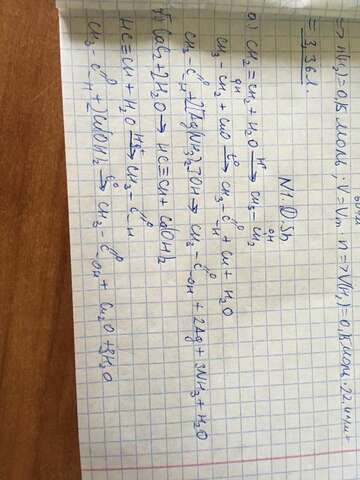 → n(H₂)=0,15 моль ; V = Vm · n => V(H₂)=0,15моль·22,4л/моль
= 3,36л.
N1. D Sh
а) CH₂=CH₂ + H₂O →(H⁺) CH₃-CH₂-OH
CH₃-CH₂-OH + CuO →(t°) CH₃-C(=O)-H + Cu + H₂O
CH₃-C(=O)-H + 2[Ag(NH₃)₂]OH → CH₃-C(=O)-OH + 2Ag + 3NH₃ + H₂O
б) CaC₂ + 2H₂O → HC≡CH + Ca(OH)₂
HC≡CH + H₂O →(Hg²⁺) CH₃-C(=O)-H
CH₃-C(=O)-H + 2Cu(OH)₂ →(t°) CH₃-C(=O)-OH + Cu₂O + 2H₂O